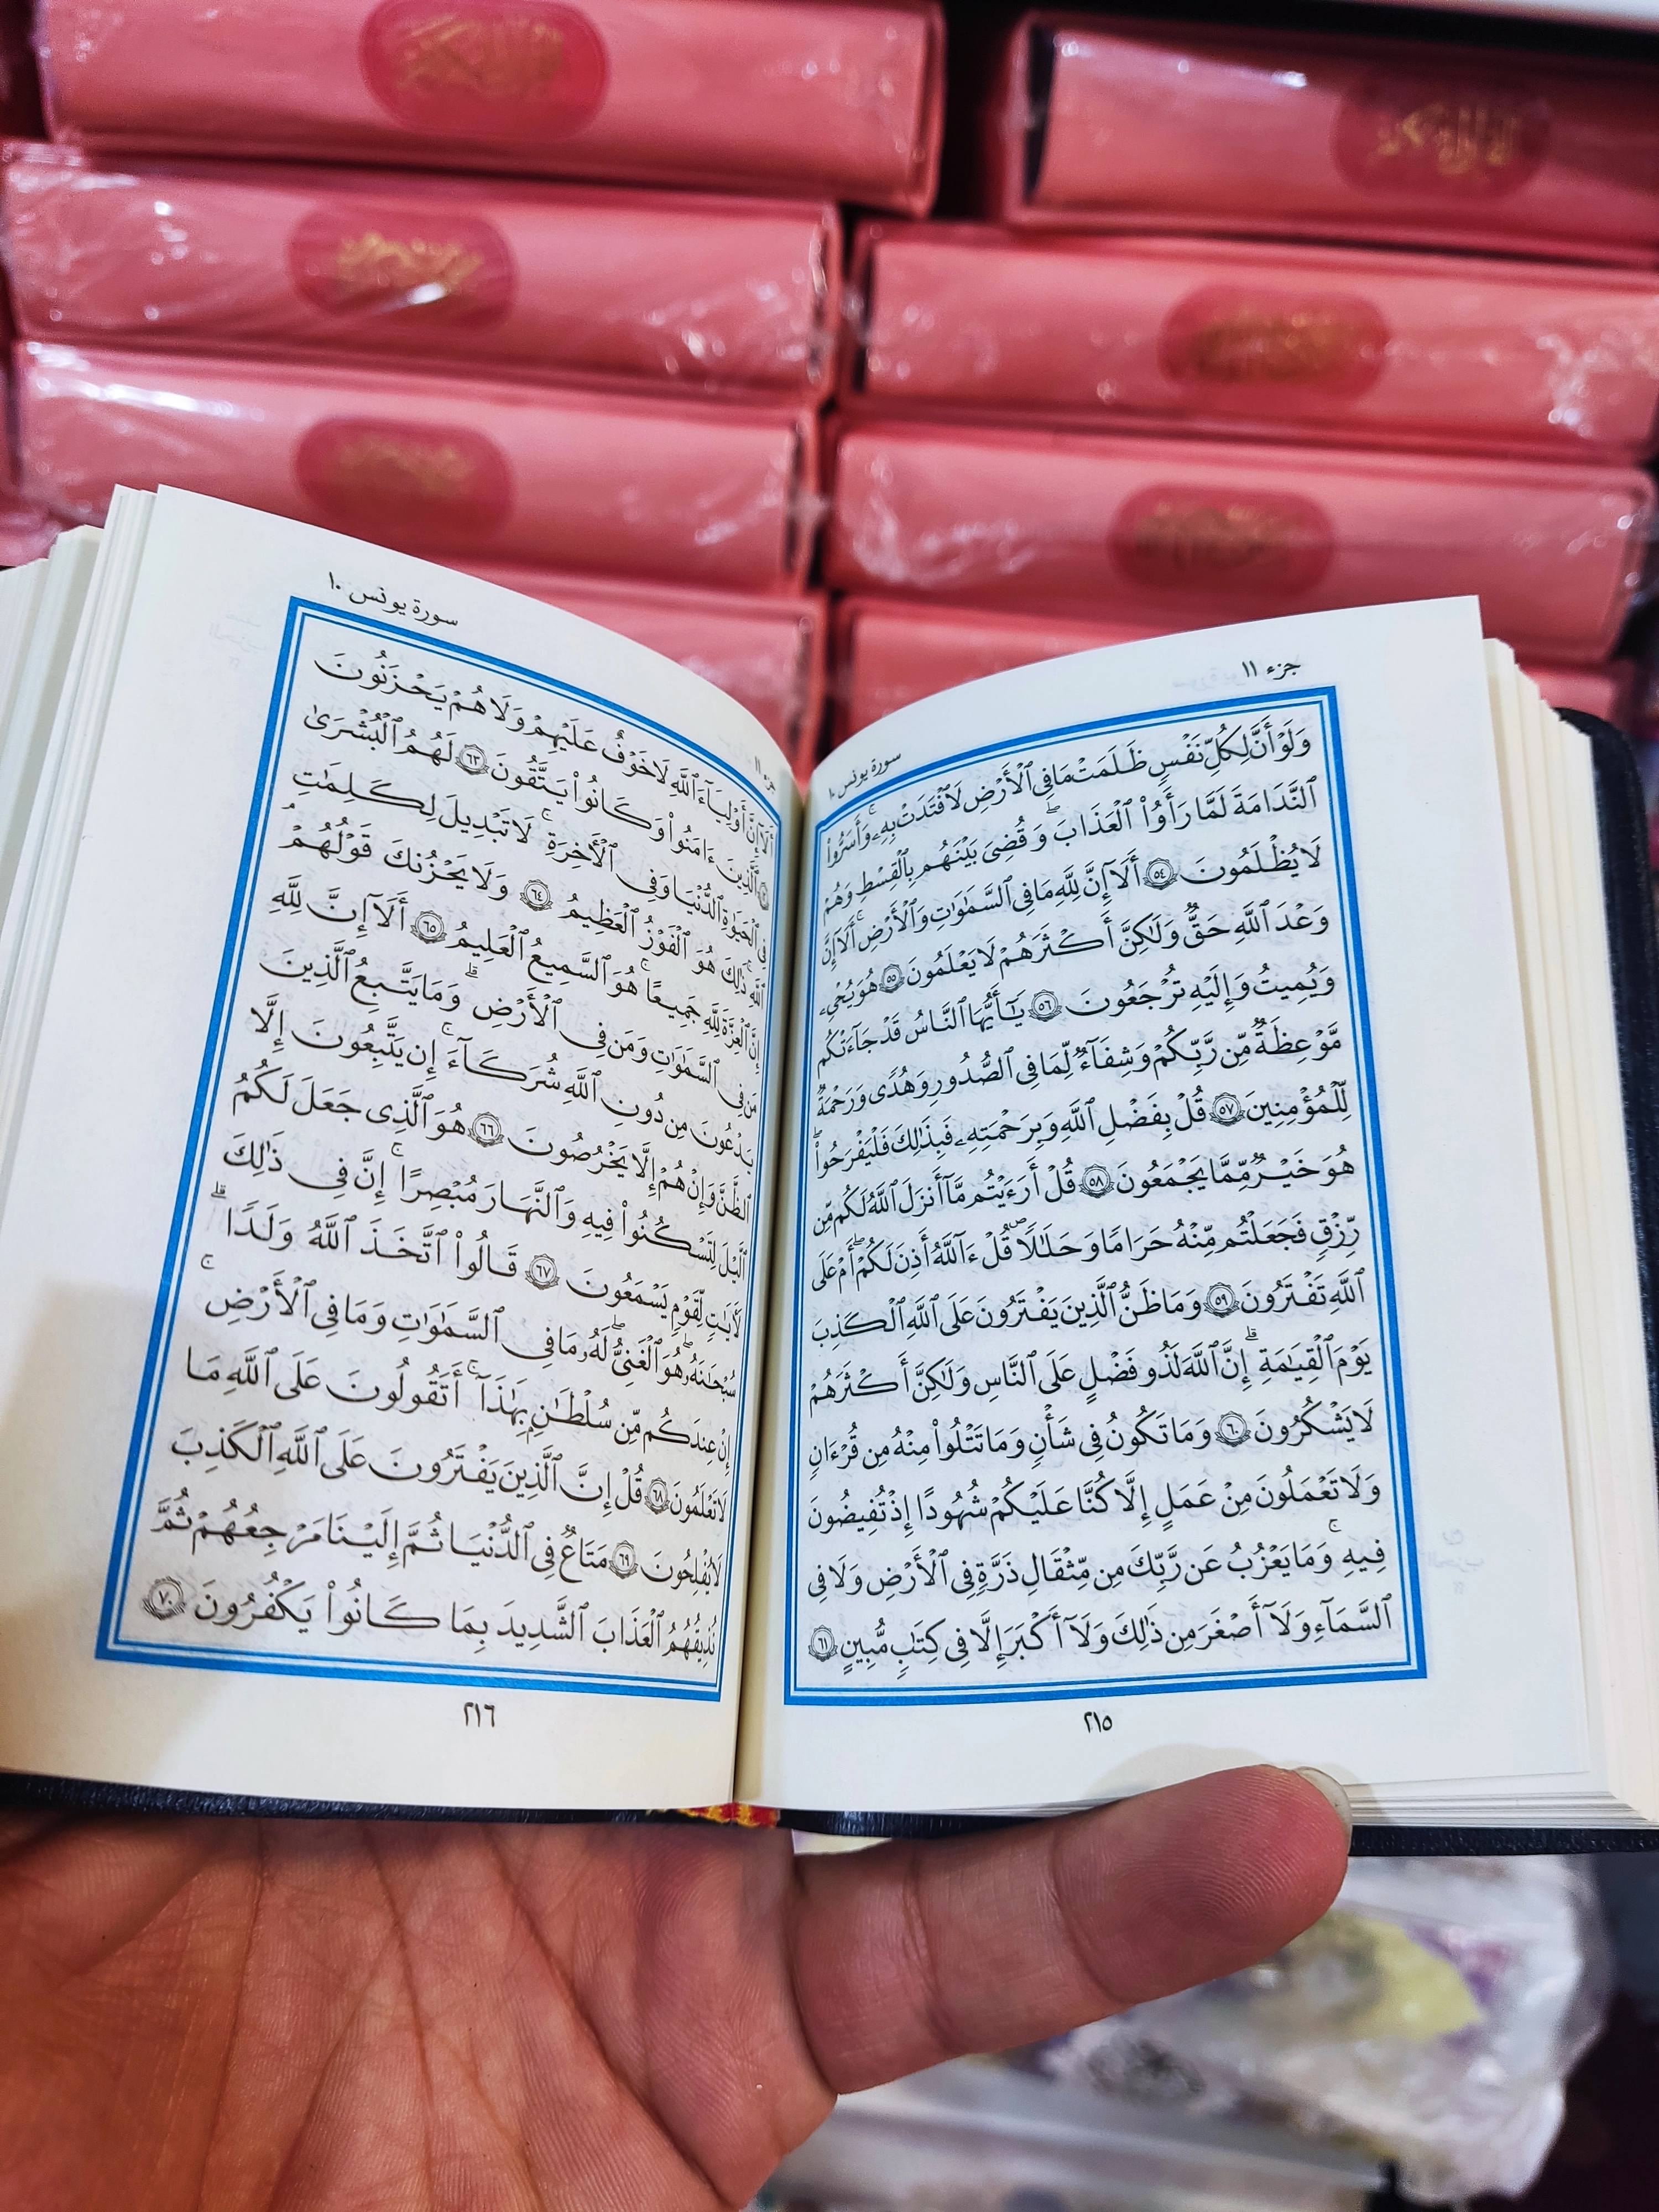 جزء ١١
سورة يونس ١٠
وَلَوْ أَنَّ لِكُلِّ نَفْسٍ ظَلَمَتْ مَا فِى ٱلْأَرْضِ لَٱفْتَدَتْ بِهِۦ ۗ وَأَسَرُّوا۟
ٱلنَّدَامَةَ لَمَّا رَأَوُا۟ ٱلْعَذَابَ ۖ وَقُضِىَ بَيْنَهُم بِٱلْقِسْطِ وَهُمْ
لَا يُظْلَمُونَ ٥٤ أَلَآ إِنَّ لِلَّهِ مَا فِى ٱلسَّمَٰوَٰتِ وَٱلْأَرْضِ ۗ أَلَآ إِنَّ
وَعْدَ ٱللَّهِ حَقٌّ وَلَٰكِنَّ أَكْثَرَهُمْ لَا يَعْلَمُونَ ٥٥ هُوَ يُحْىِۦ
وَيُمِيتُ وَإِلَيْهِ تُرْجَعُونَ ٥٦ يَٰٓأَيُّهَا ٱلنَّاسُ قَدْ جَآءَتْكُم
مَّوْعِظَةٌ مِّن رَّبِّكُمْ وَشِفَآءٌ لِّمَا فِى ٱلصُّدُورِ وَهُدًى وَرَحْمَةٌ
لِّلْمُؤْمِنِينَ ٥٧ قُلْ بِفَضْلِ ٱللَّهِ وَبِرَحْمَتِهِۦ فَبِذَٰلِكَ فَلْيَفْرَحُوا۟ ۖ
هُوَ خَيْرٌ مِّمَّا يَجْمَعُونَ ٥٨ قُلْ أَرَءَيْتُم مَّآ أَنزَلَ ٱللَّهُ لَكُم مِّن
رِّزْقٍ فَجَعَلْتُم مِّنْهُ حَرَامًا وَحَلَٰلًا قُلْ ءَآللَّهُ أَذِنَ لَكُمْ ۖ أَمْ عَلَى
ٱللَّهِ تَفْتَرُونَ ٥٩ وَمَا ظَنُّ ٱلَّذِينَ يَفْتَرُونَ عَلَى ٱللَّهِ ٱلْكَذِبَ
يَوْمَ ٱلْقِيَٰمَةِ ۗ إِنَّ ٱللَّهَ لَذُو فَضْلٍ عَلَى ٱلنَّاسِ وَلَٰكِنَّ أَكْثَرَهُمْ
لَا يَشْكُرُونَ ٦٠ وَمَا تَكُونُ فِى شَأْنٍ وَمَا تَتْلُوا۟ مِنْهُ مِن قُرْءَانٍ
وَلَا تَعْمَلُونَ مِنْ عَمَلٍ إِلَّا كُنَّا عَلَيْكُمْ شُهُودًا إِذْ تُفِيضُونَ
فِيهِ ۚ وَمَا يَعْزُبُ عَن رَّبِّكَ مِن مِّثْقَالِ ذَرَّةٍ فِى ٱلْأَرْضِ وَلَا فِى
ٱلسَّمَآءِ وَلَآ أَصْغَرَ مِن ذَٰلِكَ وَلَآ أَكْبَرَ إِلَّا فِى كِتَٰبٍ مُّبِينٍ ٦١
٢١٥
جزء ١١
سورة يونس ١٠
أَلَآ إِنَّ أَوْلِيَآءَ ٱللَّهِ لَا خَوْفٌ عَلَيْهِمْ وَلَا هُمْ يَحْزَنُونَ
٦٢ ٱلَّذِينَ ءَامَنُوا۟ وَكَانُوا۟ يَتَّقُونَ ٦٣ لَهُمُ ٱلْبُشْرَىٰ
فِى ٱلْحَيَوٰةِ ٱلدُّنْيَا وَفِى ٱلْأَخِرَةِ ۚ لَا تَبْدِيلَ لِكَلِمَٰتِ
ٱللَّهِ ۚ ذَٰلِكَ هُوَ ٱلْفَوْزُ ٱلْعَظِيمُ ٦٤ وَلَا يَحْزُنكَ قَوْلُهُمْ ۘ
إِنَّ ٱلْعِزَّةَ لِلَّهِ جَمِيعًا ۚ هُوَ ٱلسَّمِيعُ ٱلْعَلِيمُ ٦٥ أَلَآ إِنَّ لِلَّهِ
مَن فِى ٱلسَّمَٰوَٰتِ وَمَن فِى ٱلْأَرْضِ ۗ وَمَا يَتَّبِعُ ٱلَّذِينَ
يَدْعُونَ مِن دُونِ ٱللَّهِ شُرَكَآءَ ۚ إِن يَتَّبِعُونَ إِلَّا
ٱلظَّنَّ وَإِنْ هُمْ إِلَّا يَخْرُصُونَ ٦٦ هُوَ ٱلَّذِى جَعَلَ لَكُمُ
ٱلَّيْلَ لِتَسْكُنُوا۟ فِيهِ وَٱلنَّهَارَ مُبْصِرًا ۚ إِنَّ فِى ذَٰلِكَ
لَأَيَٰتٍ لِّقَوْمٍ يَسْمَعُونَ ٦٧ قَالُوا۟ ٱتَّخَذَ ٱللَّهُ وَلَدًا ۗ
سُبْحَٰنَهُۥ ۖ هُوَ ٱلْغَنِىُّ ۖ لَهُۥ مَا فِى ٱلسَّمَٰوَٰتِ وَمَا فِى ٱلْأَرْضِ ۚ
إِنْ عِندَكُم مِّن سُلْطَٰنٍۭ بِهَٰذَآ ۚ أَتَقُولُونَ عَلَى ٱللَّهِ مَا
لَا تَعْلَمُونَ ٦٨ قُلْ إِنَّ ٱلَّذِينَ يَفْتَرُونَ عَلَى ٱللَّهِ ٱلْكَذِبَ
لَا يُفْلِحُونَ ٦٩ مَتَٰعٌ فِى ٱلدُّنْيَا ثُمَّ إِلَيْنَا مَرْجِعُهُمْ ثُمَّ
نُذِيقُهُمُ ٱلْعَذَابَ ٱلشَّدِيدَ بِمَا كَانُوا۟ يَكْفُرُونَ ٧٠
٢١٦